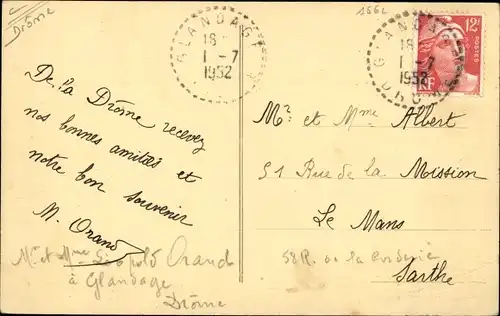 Drôme
1662
GLANDAGE
18
1-7
1952
GLANDAGE
18
1-7
1952
DROME
12F
POSTES
RF
De la Drôme recevez
nos bonnes amitiés et
notre bon souvenir
M. Orand
Mr et Mme Léopold Orand
à Glandage
Drôme
Mr et Mme Albert
51 Rue de la Mission
Le Mans
58 R. de la Corderie
Sarthe